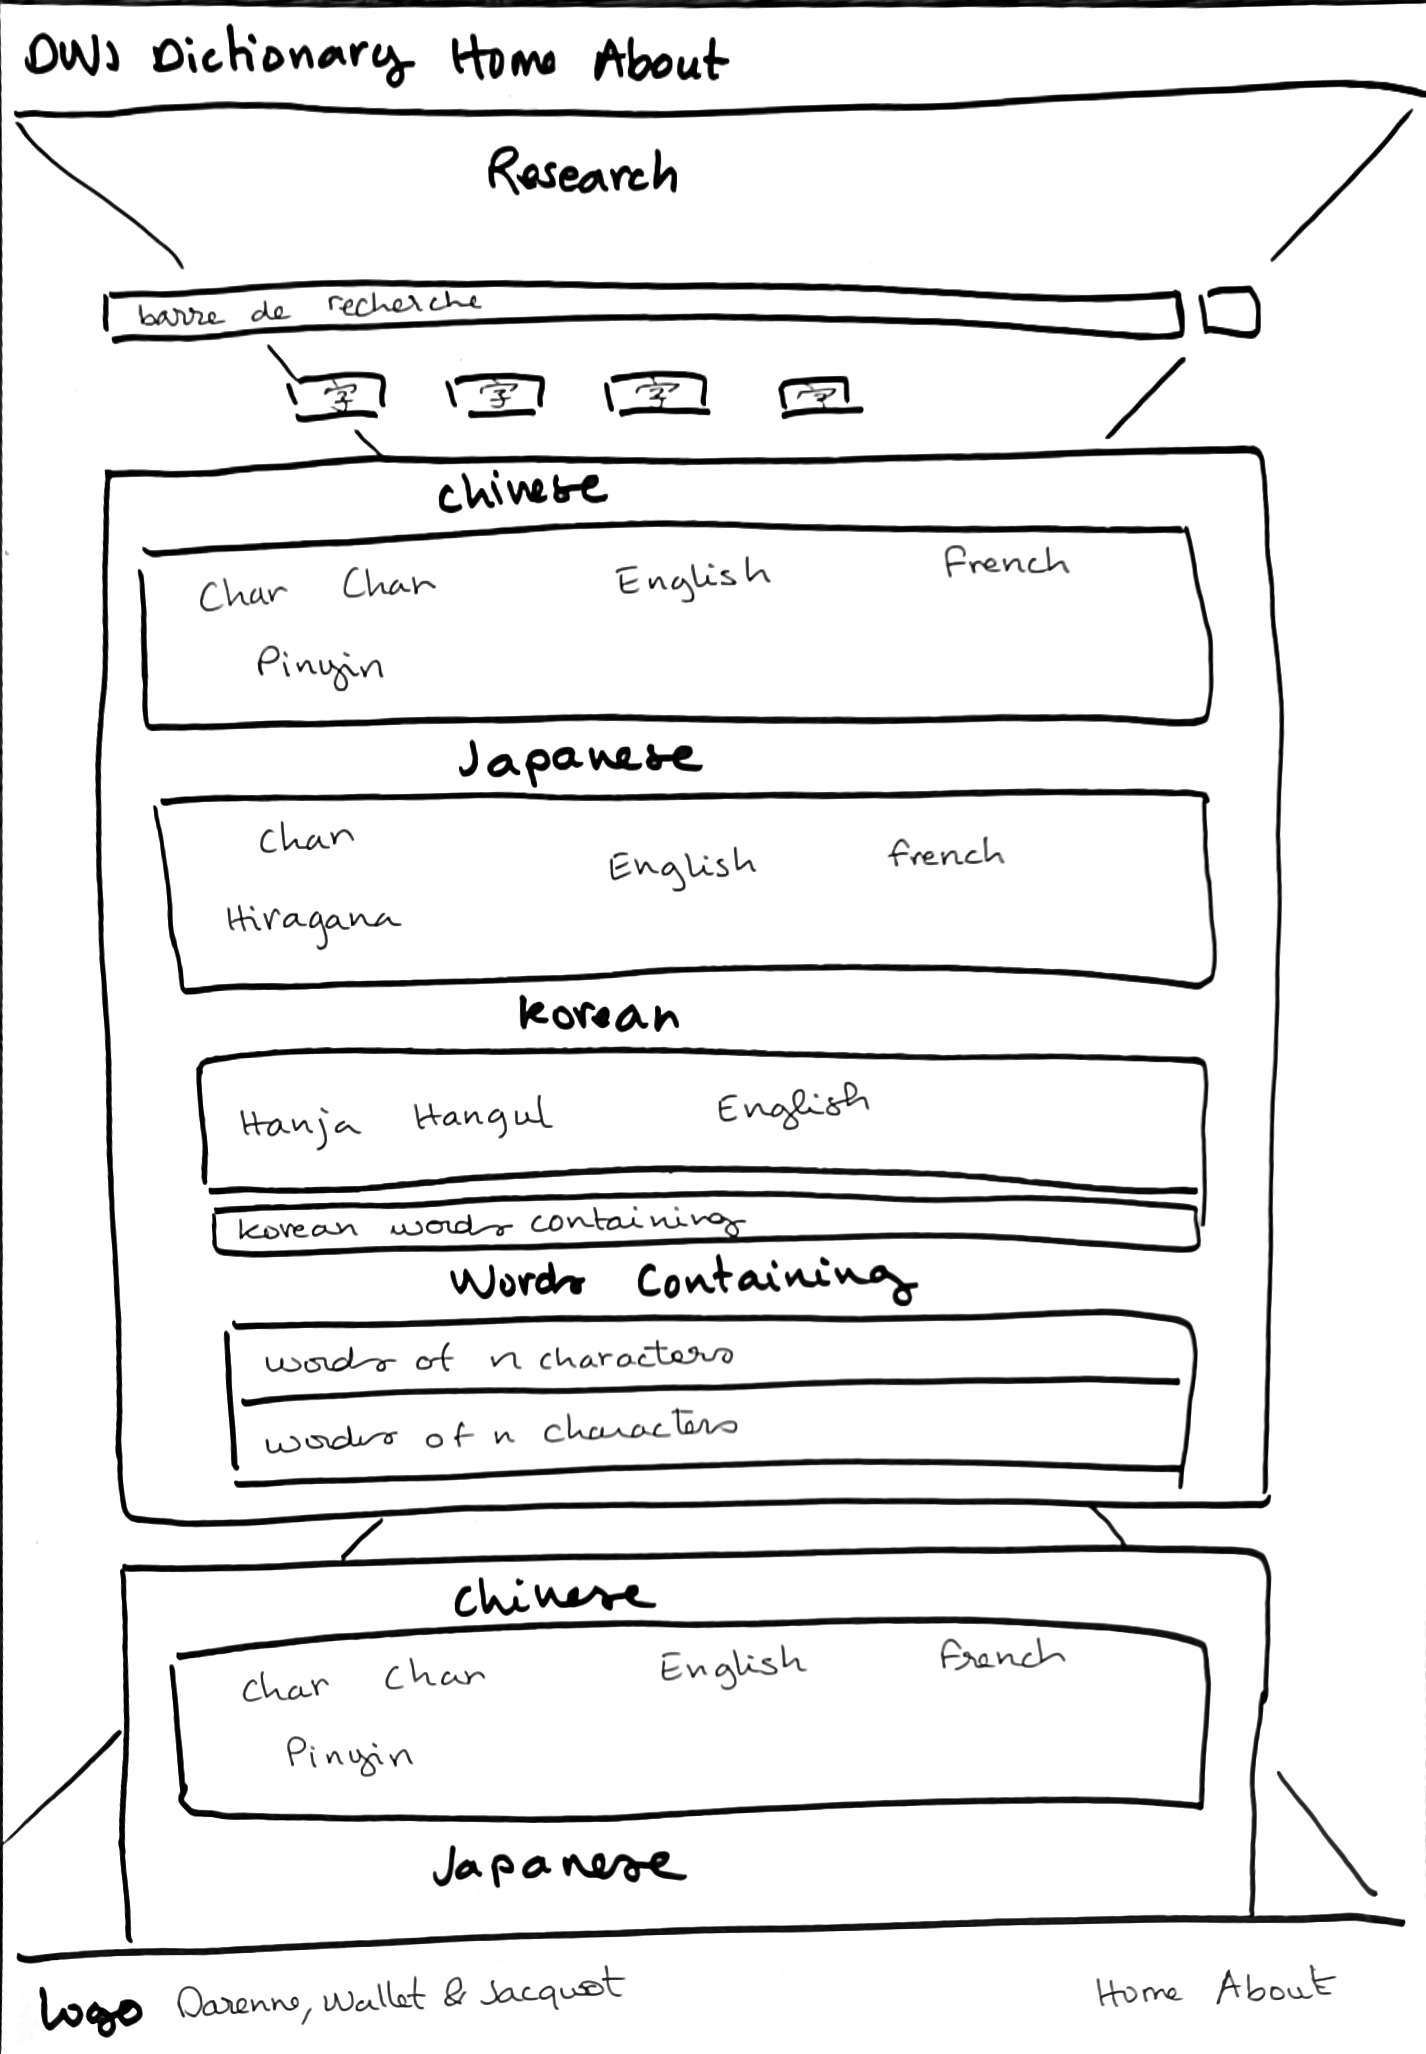 DWJ Dictionary Home About
Research
barre de recherche
字 字 字 字
Chinese
Char Char English French
Pinyin
Japanese
Char English French
Hiragana
Korean
Hanja Hangul English
Korean words containing
Words Containing
words of n characters
words of n characters
Chinese
Char Char English French
Pinyin
Japanese
Logo Darenne, Wallet & Jacquot Home About